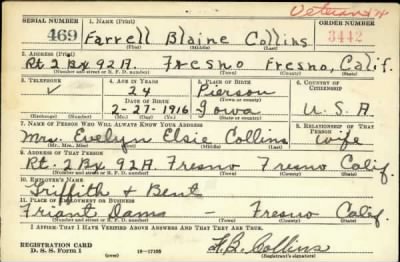 Veteran
SERIAL NUMBER 1. NAME (Print) ORDER NUMBER
469 Farrell Blaine Collins 3442
(First) (Middle) (Last)
2. ADDRESS (Print)
Rt 2 Bx 92A. Fresno Fresno, Calif.
(Number and street or R. F. D. number) (Town) (County) (State)
3. TELEPHONE 4. AGE IN YEARS 5. PLACE OF BIRTH 6. COUNTRY OF CITIZENSHIP
✓ 24 Pierson
DATE OF BIRTH (Town or county)
2-27-1916 Iowa U.S.A
(Mo.) (Day) (Yr.) (State or country)
7. NAME OF PERSON WHO WILL ALWAYS KNOW YOUR ADDRESS 8. RELATIONSHIP OF THAT PERSON
Mrs. Evelyn Elsie Collins wife
(Mr., Mrs., Miss) (First) (Middle) (Last)
9. ADDRESS OF THAT PERSON
Rt. 2 Bx 92A. Fresno Fresno Calif.
(Number and street or R. F. D. number) (Town) (County) (State)
10. EMPLOYER'S NAME
Griffith & Bent
11. PLACE OF EMPLOYMENT OR BUSINESS
Friant Dams — Fresno Calif
(Number and street or R. F. D. number) (Town) (County) (State)
I AFFIRM THAT I HAVE VERIFIED ABOVE ANSWERS AND THAT THEY ARE TRUE.
REGISTRATION CARD
D. S. S. FORM 1 (over) 16—17105 F.B. Collins
(Registrant's signature)